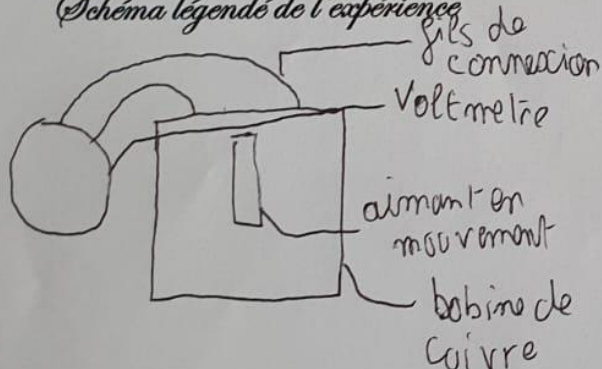 Schéma légendé de l'expérience
fils de
connexion
Voltmetre
aimant en
mouvement
bobine de
cuivre